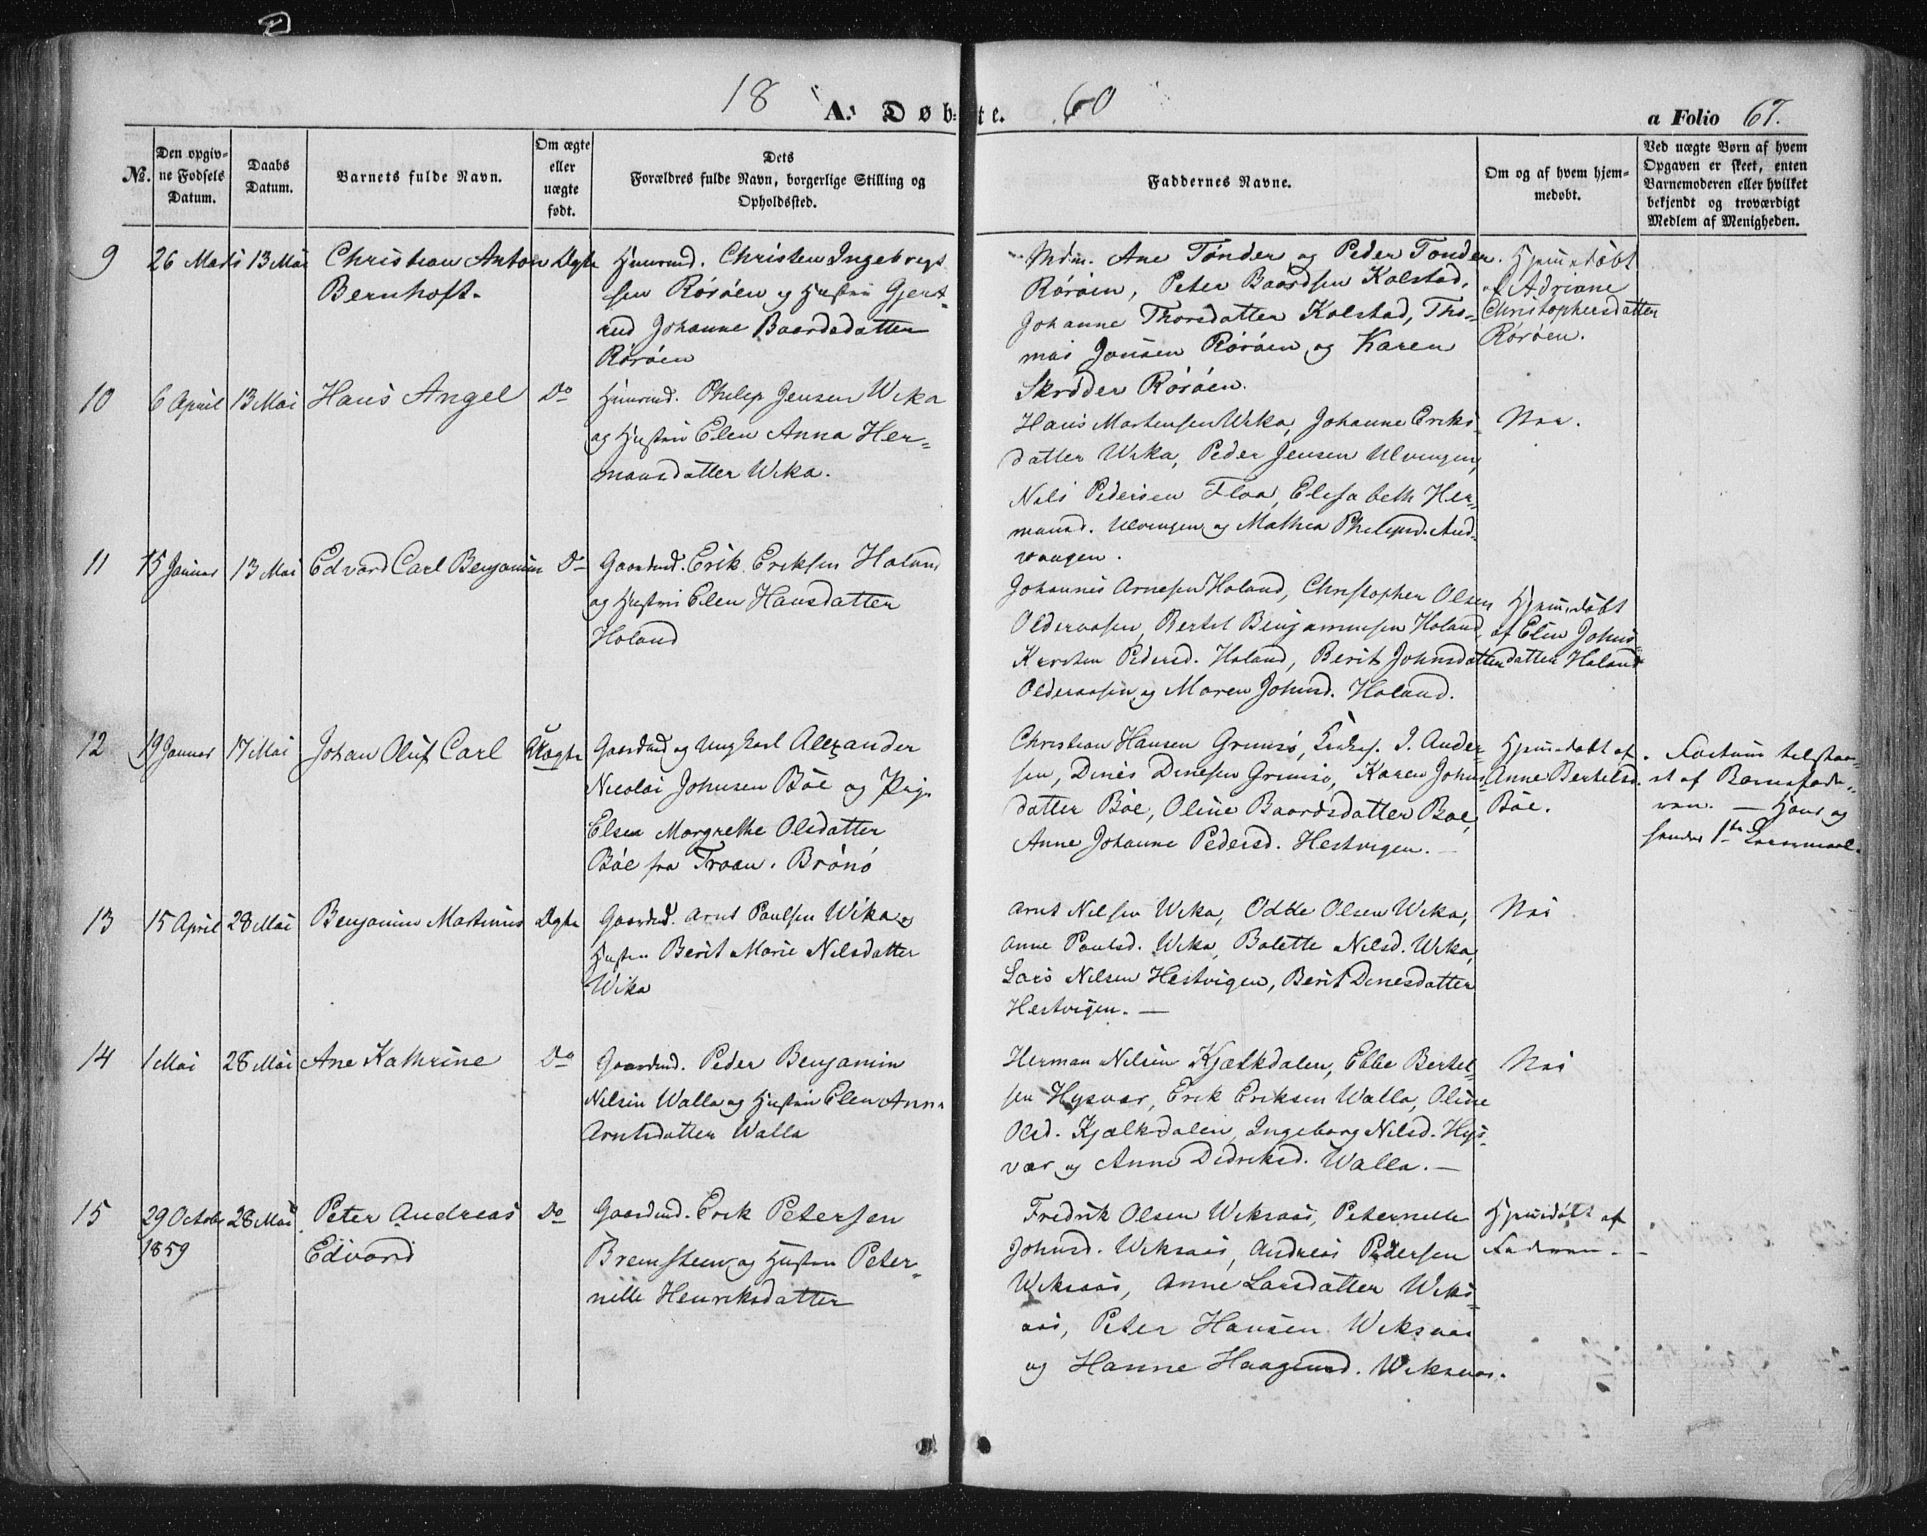 18 A. Døbte. 60
a Folio 67.
No. Den opgivne Fødsels Datum. Daabs Datum. Barnets fulde Navn. Om ægte eller uægte født. Dets Forældres fulde Navn, borgerlige Stilling og Opholdssted. Faddernes Navne. Om og af hvem hjemmedøbt. Ved uægte Børn af hvem Opgaven er skeet, enten Barnemoderen eller hvilket bekjendt og troværdigt Medlem af Menigheden.
9 26 Marts 13 Mai Christian Anton Bernhoft. Ægte
Huusmd. Christen Ingebrigt-
sen Rørøen og Hustru Gjert-
rud Johanne Baardsdatter
Rørøen
Mdm. Ane Tønder og Peder Tønder
Rørøen, Peter Baardsen Kolstad,
Johanne Thorsdatter Kolstad, Tho-
mas Jonsen Rørøen og Karen
Skrøder Rørøen.
Hjemmedøbt
af Adriane
Christophersdatter
Rørøen.
10 6 April 13 Mai Hans Angel Do
Huusmd. Philip Jensen Wika
og Hustru Elen Anna Her-
mansdatter Wika.
Hans Mortensen Wika, Johanne Eriks-
datter Wika, Peder Jensen Ulvingen,
Nils Pedersen Floa, Elisabeth Her-
mansd. Ulvingen og Mathea Philipsd. And-
vaagen.
Nei.
11 15 Januar 13 Mai Edvard Carl Benjamin Do
Gaardmd. Erik Eriksen Holand
og Hustru Elen Hansdatter
Holand
Johannes Arnesen Holand, Christopher Olsen
Olderaasen, Bertel Benjaminsen Holand,
Kirsten Pedersd. Holand, Berit Johnsdatter
Olderaasen og Maren Johnsd. Holand.
Hjemmedøbt
af Elen Johns-
datter Holand
12 19 Januar 17 Mai Johan Oluf Carl Uægte
Gaardmd og Ungkarl Alexander
Nicolai Johnsen Bøe og Pige
Elsen Margrethe Olsdatter
Bøe fra Traan. Brønø
Christian Hansen Grimsø, J. Ander-
sen, Dines Dinesen Grimsø, Karen Johns-
datter Bøe, Oline Baardsdatter Bøe,
Anne Johanne Pedersd. Hestvigen.
Hjemmedøbt af
Anne Bertelsd.
Bøe.
Factum tilstaa-
et af Barnefade-
ren. — Hans og
hendes 1ste Leiermaal.
13 15 April 28 Mai Benjamin Martinus Ægte
Gaardmd. Arnt Paulsen Wika og
Hustru Berit Marie Nilsdatter
Wika
Arnt Nilsen Wika, Odde Olsen Wika,
Anne Paulsd. Wika, Bolette Nilsd. Wika,
Lars Nilsen Hestvigen, Berit Dinesdatter
Hestvigen. —
Nei
14 1 Mai 28 Mai Ane Kathrine Do
Gaardmd. Peder Benjamin
Nilsen Walla og Hustru Elen Anna
Arntsdatter Walla
Herman Nilsen Kjælkdalen, Ebbe Bertel-
sen Hysvær, Erik Eriksen Walla, Oline
Olsd. Kjælkdalen, Ingeborg Nilsd. Hys-
vær og Anne Didriksd. Walla. —
Nei
15 29 October 1859 28 Mai Peter Andreas Edvard Do
Gaardmd. Erik Petersen
Bremsteen og Hustru Peter-
nille Henriksdatter
Fredrik Olsen Wiksaas, Peternelle
Johnsd. Wiksaas, Andreas Pedersen
Wiksaas, Anne Larsdatter Wiks-
aas, Peter Hansen Wiksaas
og Hanne Haagensd. Wiksaas.
Hjemmedøbt af
Faderen. —